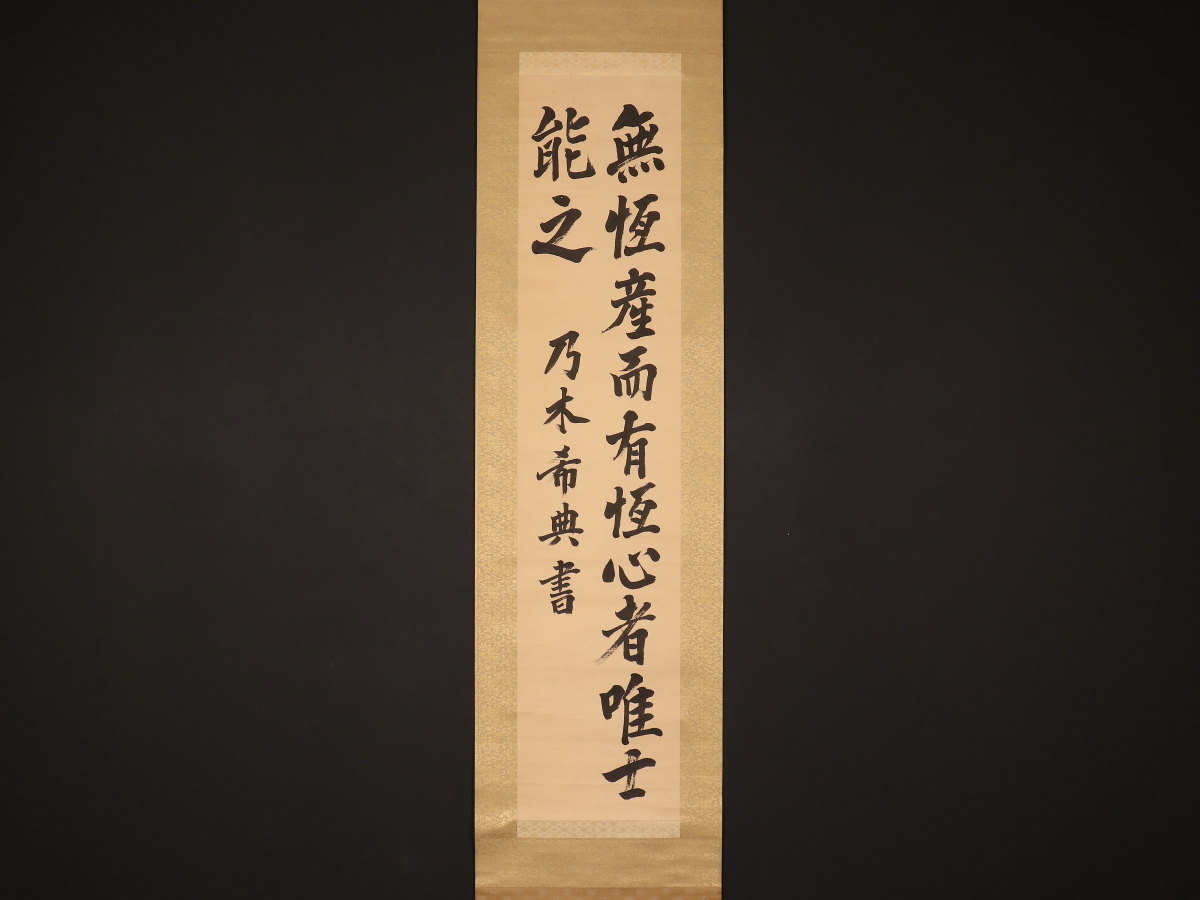 無恆產而有恆心者唯士
能之
乃木希典書